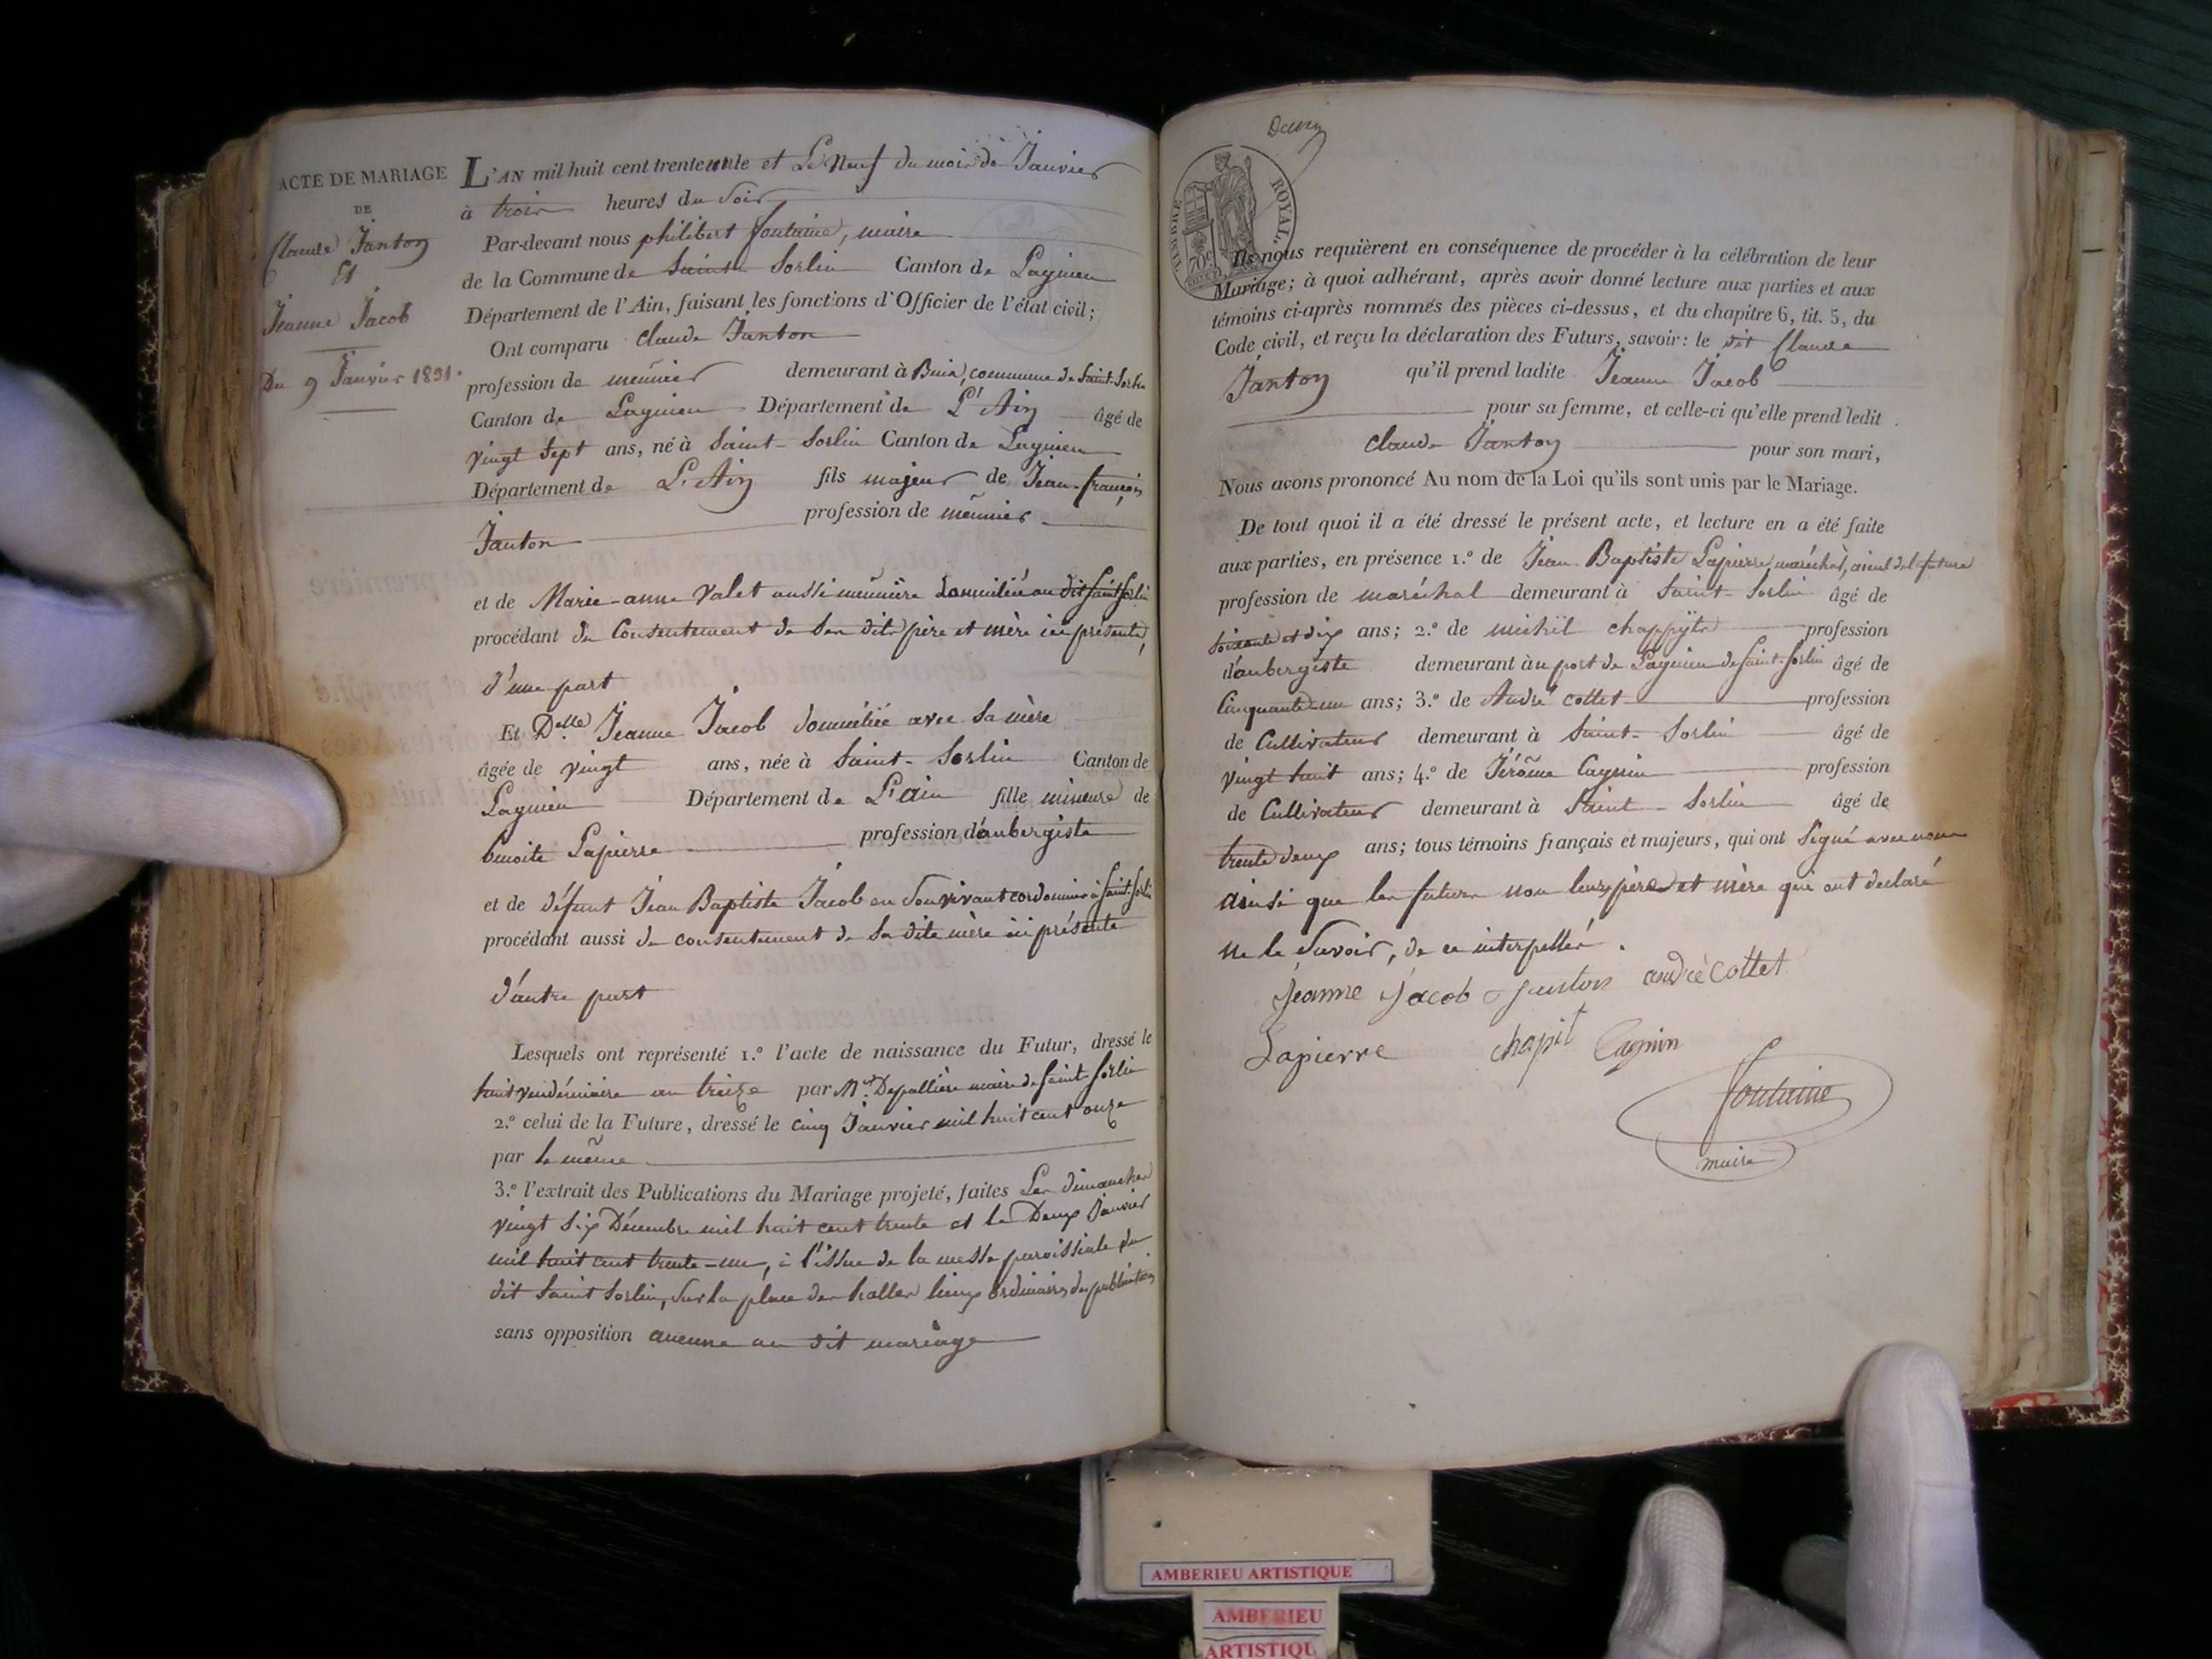 ACTE DE MARIAGE
DE
Claude Janton
Et
Jeanne Jacob
Du 9 Janvier 1831.
L'AN mil huit cent trente un le et Le Neuf du mois de Janvier
à trois heures du Soir
Par-devant nous philibert fontaine, maire
de la Commune de Saint Sorlin Canton de Lagnieu
Département de l'Ain, faisant les fonctions d'Officier de l'état civil;
Ont comparu Claude Janton
profession de meûnier demeurant à Buis, commune de Saint-Sorlin
Canton de Lagnieu Département de L'Ain âgé de
vingt sept ans, né à Saint-Sorlin Canton de Lagnieu
Département de L'Ain fils majeur de Jean-françois
Janton profession de meûnier
et de Marie-anne Valet aussi meûnière domiciliée au dit Saint Sorlin
procédant du Consentement de Son dits père et mère ici présents,
d'une part
Et D.elle Jeanne Jacob domiciliée avec Sa mère
âgée de vingt ans, née à Saint-Sorlin Canton de
Lagnieu Département de L'ain fille mineure de
benoite Lapierre profession d'aubergiste
et de défunt Jean Baptiste Jacob en Son vivant cordonnier à Saint-Sorlin
procédant aussi du consentement de Sa dite mère ici présente
d'autre part
Lesquels ont représenté 1.º l'acte de naissance du Futur, dressé le
huit vendémiaire an treize par Mr. Depallière maire de Saint-Sorlin
2.º celui de la Future, dressé le cinq Janvier mil huit cent onze
par le même
3.º l'extrait des Publications du Mariage projeté, faites Les dimanches
vingt Six Décembre mil huit cent trente et le Deux Janvier
mil huit cent trente-un, à l'issue de la messe paroissiale du
dit Saint Sorlin, Sur la place des halles lieux ordinaires des publications
sans opposition aucune au dit mariage
TIMBRE ROYAL.
70c
Ils nous requièrent en conséquence de procéder à la célébration de leur
Mariage; à quoi adhérant, après avoir donné lecture aux parties et aux
témoins ci-après nommés des pièces ci-dessus, et du chapitre 6, tit. 5, du
Code civil, et reçu la déclaration des Futurs, savoir: le dit Claude
Janton qu'il prend ladite Jeanne Jacob
pour sa femme, et celle-ci qu'elle prend ledit
Claude Janton pour son mari,
Nous avons prononcé Au nom de la Loi qu'ils sont unis par le Mariage.
De tout quoi il a été dressé le présent acte, et lecture en a été faite
aux parties, en présence 1.º de Jean-Baptiste Lapierre maréchal, aieul de la future
profession de maréchal demeurant à Saint-Sorlin âgé de
soixante et dix ans; 2.º de michel chappit profession
d'aubergiste demeurant au port de Lagnieu de Saint-Sorlin âgé de
Cinquante-un ans; 3.º de André Collet profession
de Cultivateur demeurant à Saint-Sorlin âgé de
vingt huit ans; 4.º de Jérôme Cagnin profession
de Cultivateur demeurant à Saint-Sorlin âgé de
trente deux ans; tous témoins français et majeurs, qui ont Signé avec nous
ainsi que les futurs non leurs pères et mère qui ont déclaré
ne le Savoir, de ce interpellés.
Jeanne Jacob Janton andré Collet
Lapierre chapit Cagnin
fontaine
maire
AMBERIEU ARTISTIQUE
AMBERIEU
ARTISTIQU